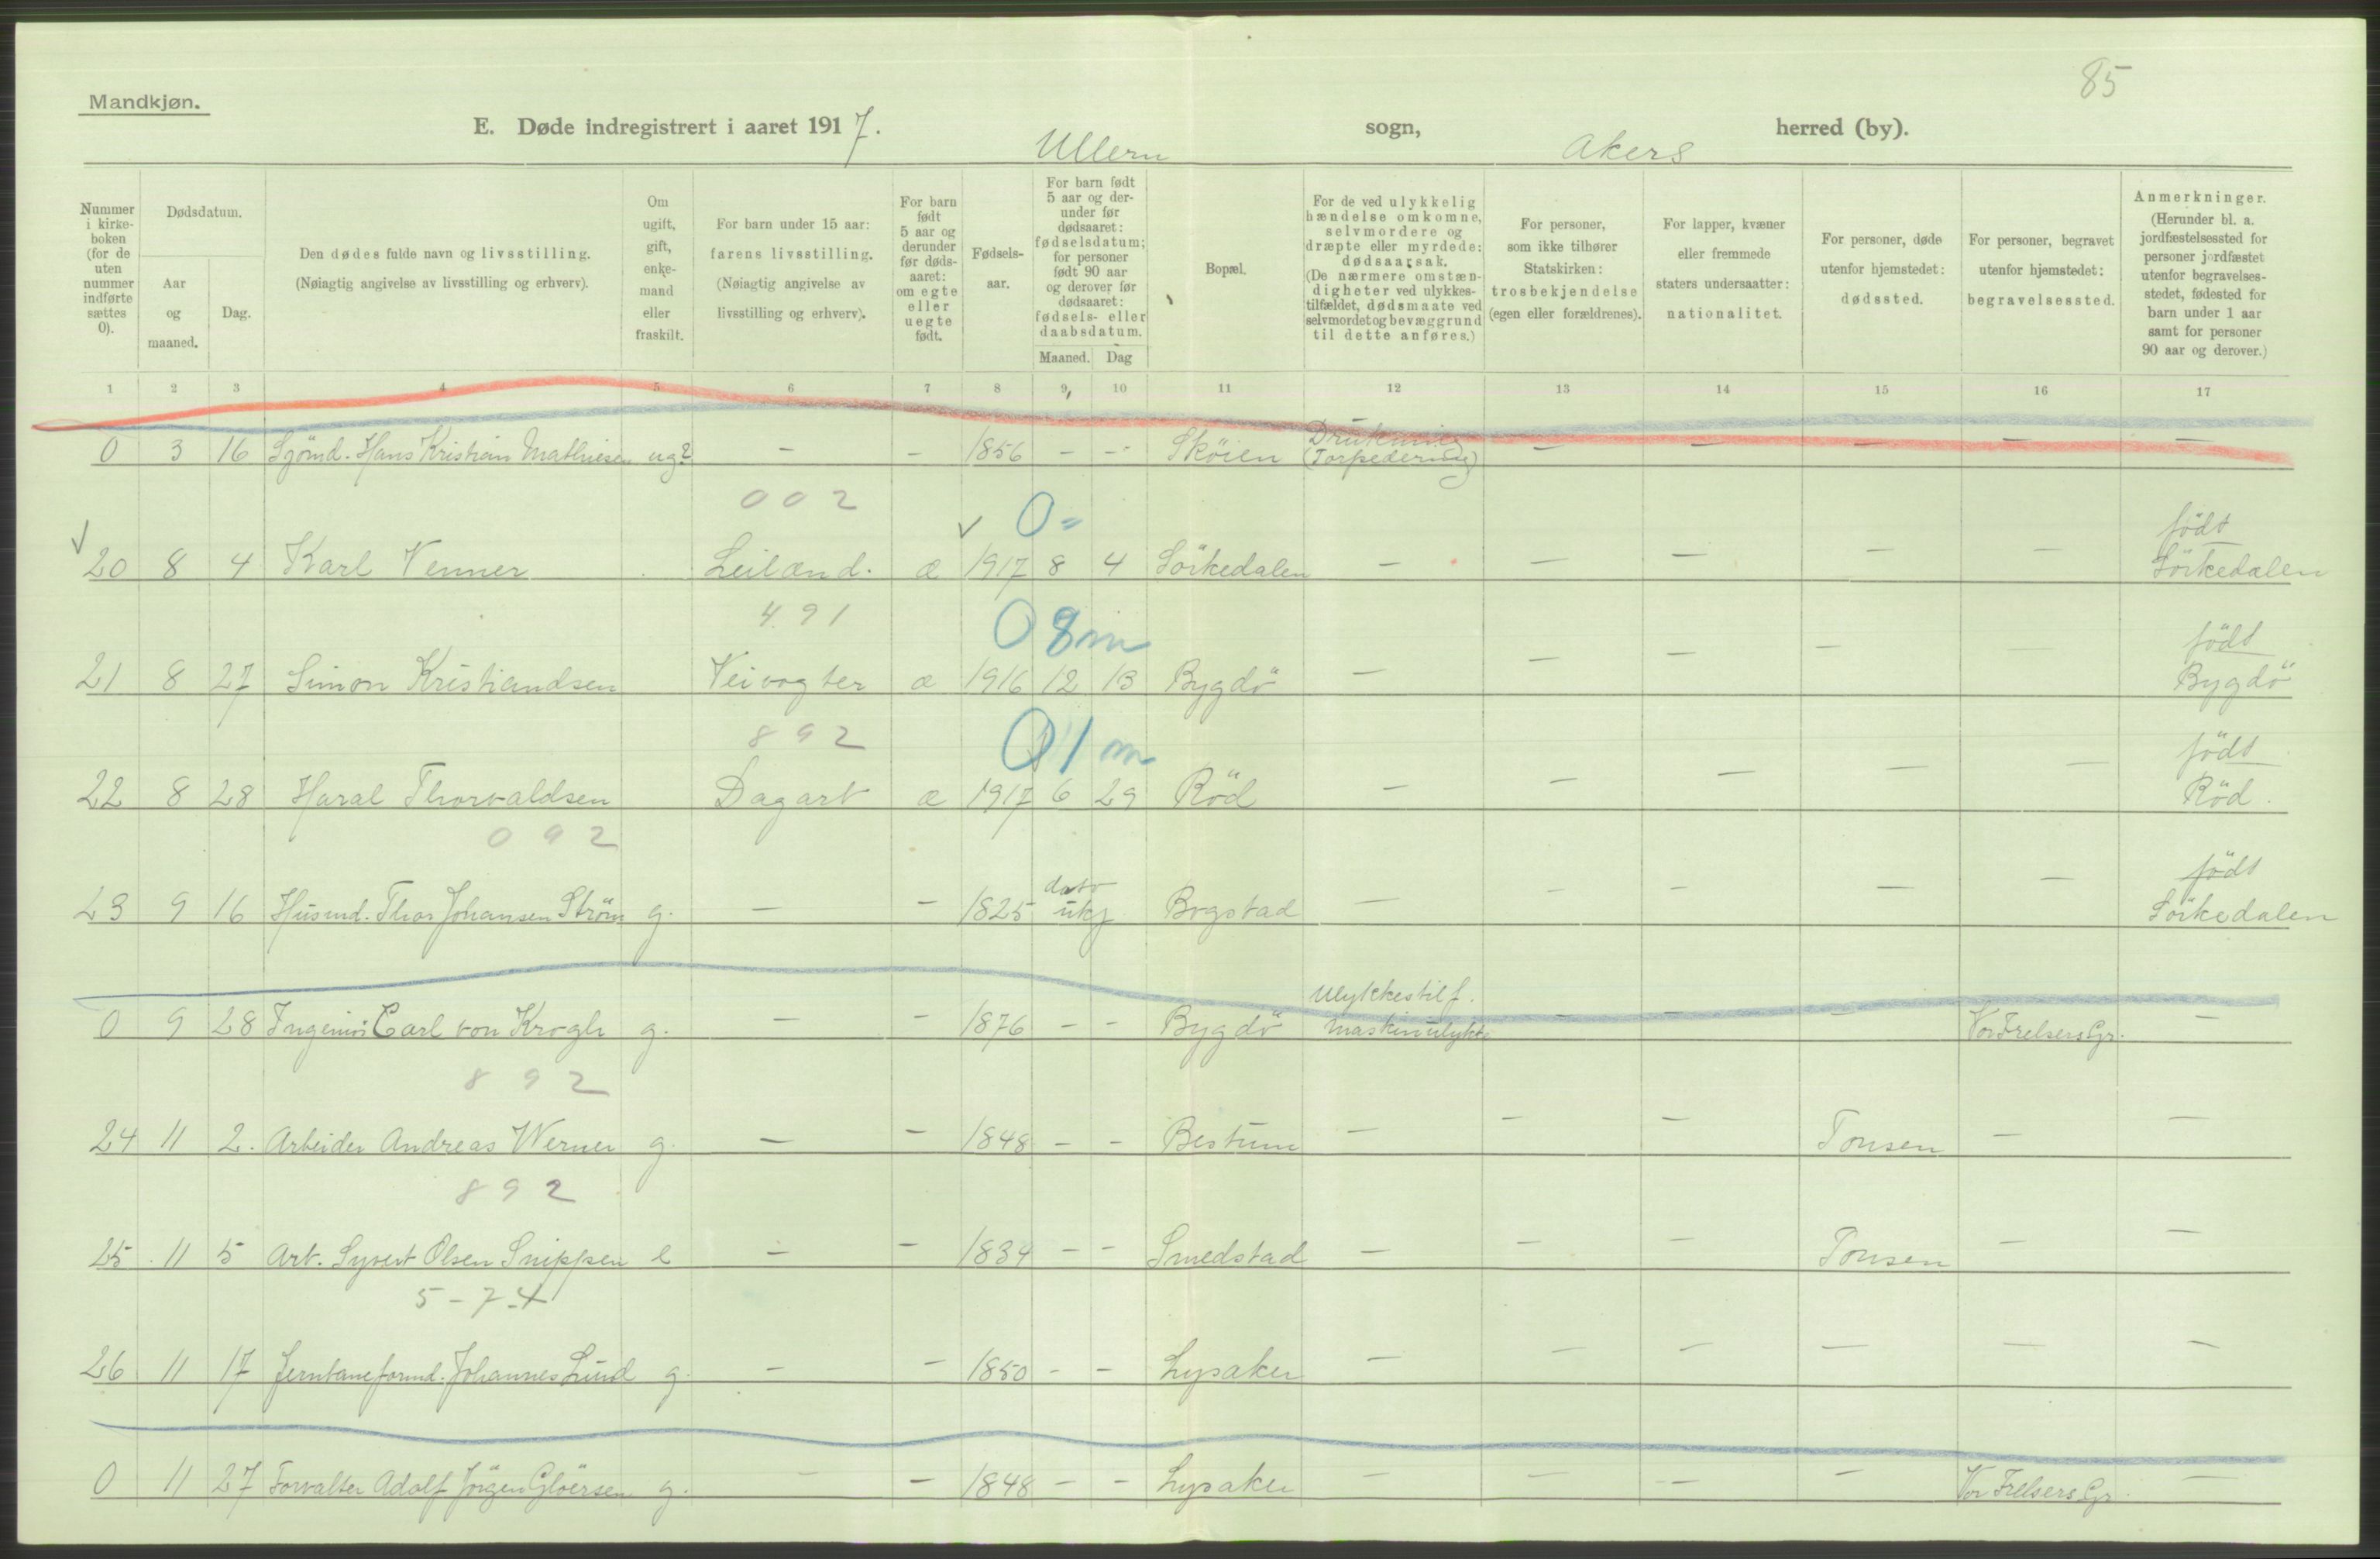 85
Mandkjøn.
E. Døde indregistrert i aaret 1917. Ullern sogn, Akers herred (by).
Nummer i kirke-boken (for de uten nummer indførte sættes 0).
Dødsdatum.
Aar og maaned.
Dag.
Den dødes fulde navn og livsstilling.
(Nøiagtig angivelse av livsstilling og erhverv).
Om ugift, gift, enke-mand eller fraskilt.
For barn under 15 aar: farens livsstilling.
(Nøiagtig angivelse av livsstilling og erhverv).
For barn født 5 aar og derunder før døds-aaret: om egte eller uegte født.
Fødsels-aar.
For barn født 5 aar og der-under før dødsaaret: fødselsdatum; for personer født 90 aar og derover før dødsaaret: fødsels- eller daabsdatum.
Maaned. Dag
Bopæl.
For de ved ulykkelig hændelse omkomne, selvmordere og dræpte eller myrdede: dødsaarsak. (De nærmere omstæn-digheter ved ulykkes-tilfældet, dødsmaate ved selvmordet og bevæggrund til dette anføres.)
For personer, som ikke tilhører Statskirken: trosbekjendelse (egen eller forældrenes).
For lapper, kvæner eller fremmede staters undersaatter: nationalitet.
For personer, døde utenfor hjemstedet: dødssted.
For personer, begravet utenfor hjemstedet: begravelsessted.
Anmerkninger.
(Herunder bl. a. jordfæstelsessted for personer jordfæstet utenfor begravelses-stedet, fødested for barn under 1 aar samt for personer 90 aar og derover.)
1 2 3 4 5 6 7 8 9 10 11 12 13 14 15 16 17
0 3 16 Sjömd. Hans Kristian Mathiesen ug? — — 1856 — — Sköien Drukning (Torpedering) — — — — —
002 0=
√ 20 8 4 Karl Venner Leilænd. æ √ 1917 8 4 Sörkedalen — — — — — født Sörkedalen
491 0 8m
21 8 27 Simon Kristiandsen Veivogter æ 1916 12 13 Bygdö — — — — — født Bygdö
892 0 1m
22 8 28 Haral Thorvaldsen Dagarb æ 1917 6 29 Röd — — — — — født Röd.
092
23 9 16 Husmd. Thor Johansen Ström g. — — 1825 dato ukj. Bogstad — — — — — født Sörkedalen
0 9 28 Ingeniör Carl von Krogh g. — — 1876 — — Bygdö Ulykkestilf. Maskinulykke — — — Vor Frelsers Gr. —
892
24 11 2. Arbeider Andreas Werner g. — — 1848 — — Bestum — — — Tonsen — —
892
25 11 5 Arb. Syvert Olsen Snippen e — — 1834 — — Smedstad — — — Tonsen — —
5-7-4
26 11 17 Jernbaneformd. Johannes Lund g. — — 1850 — — Lysaker — — — — — —
0 11 27 Forvalter Adolf Jörgen Glöersen g. — — 1848 — — Lysaker — — — — Vor Frelsers Gr. —